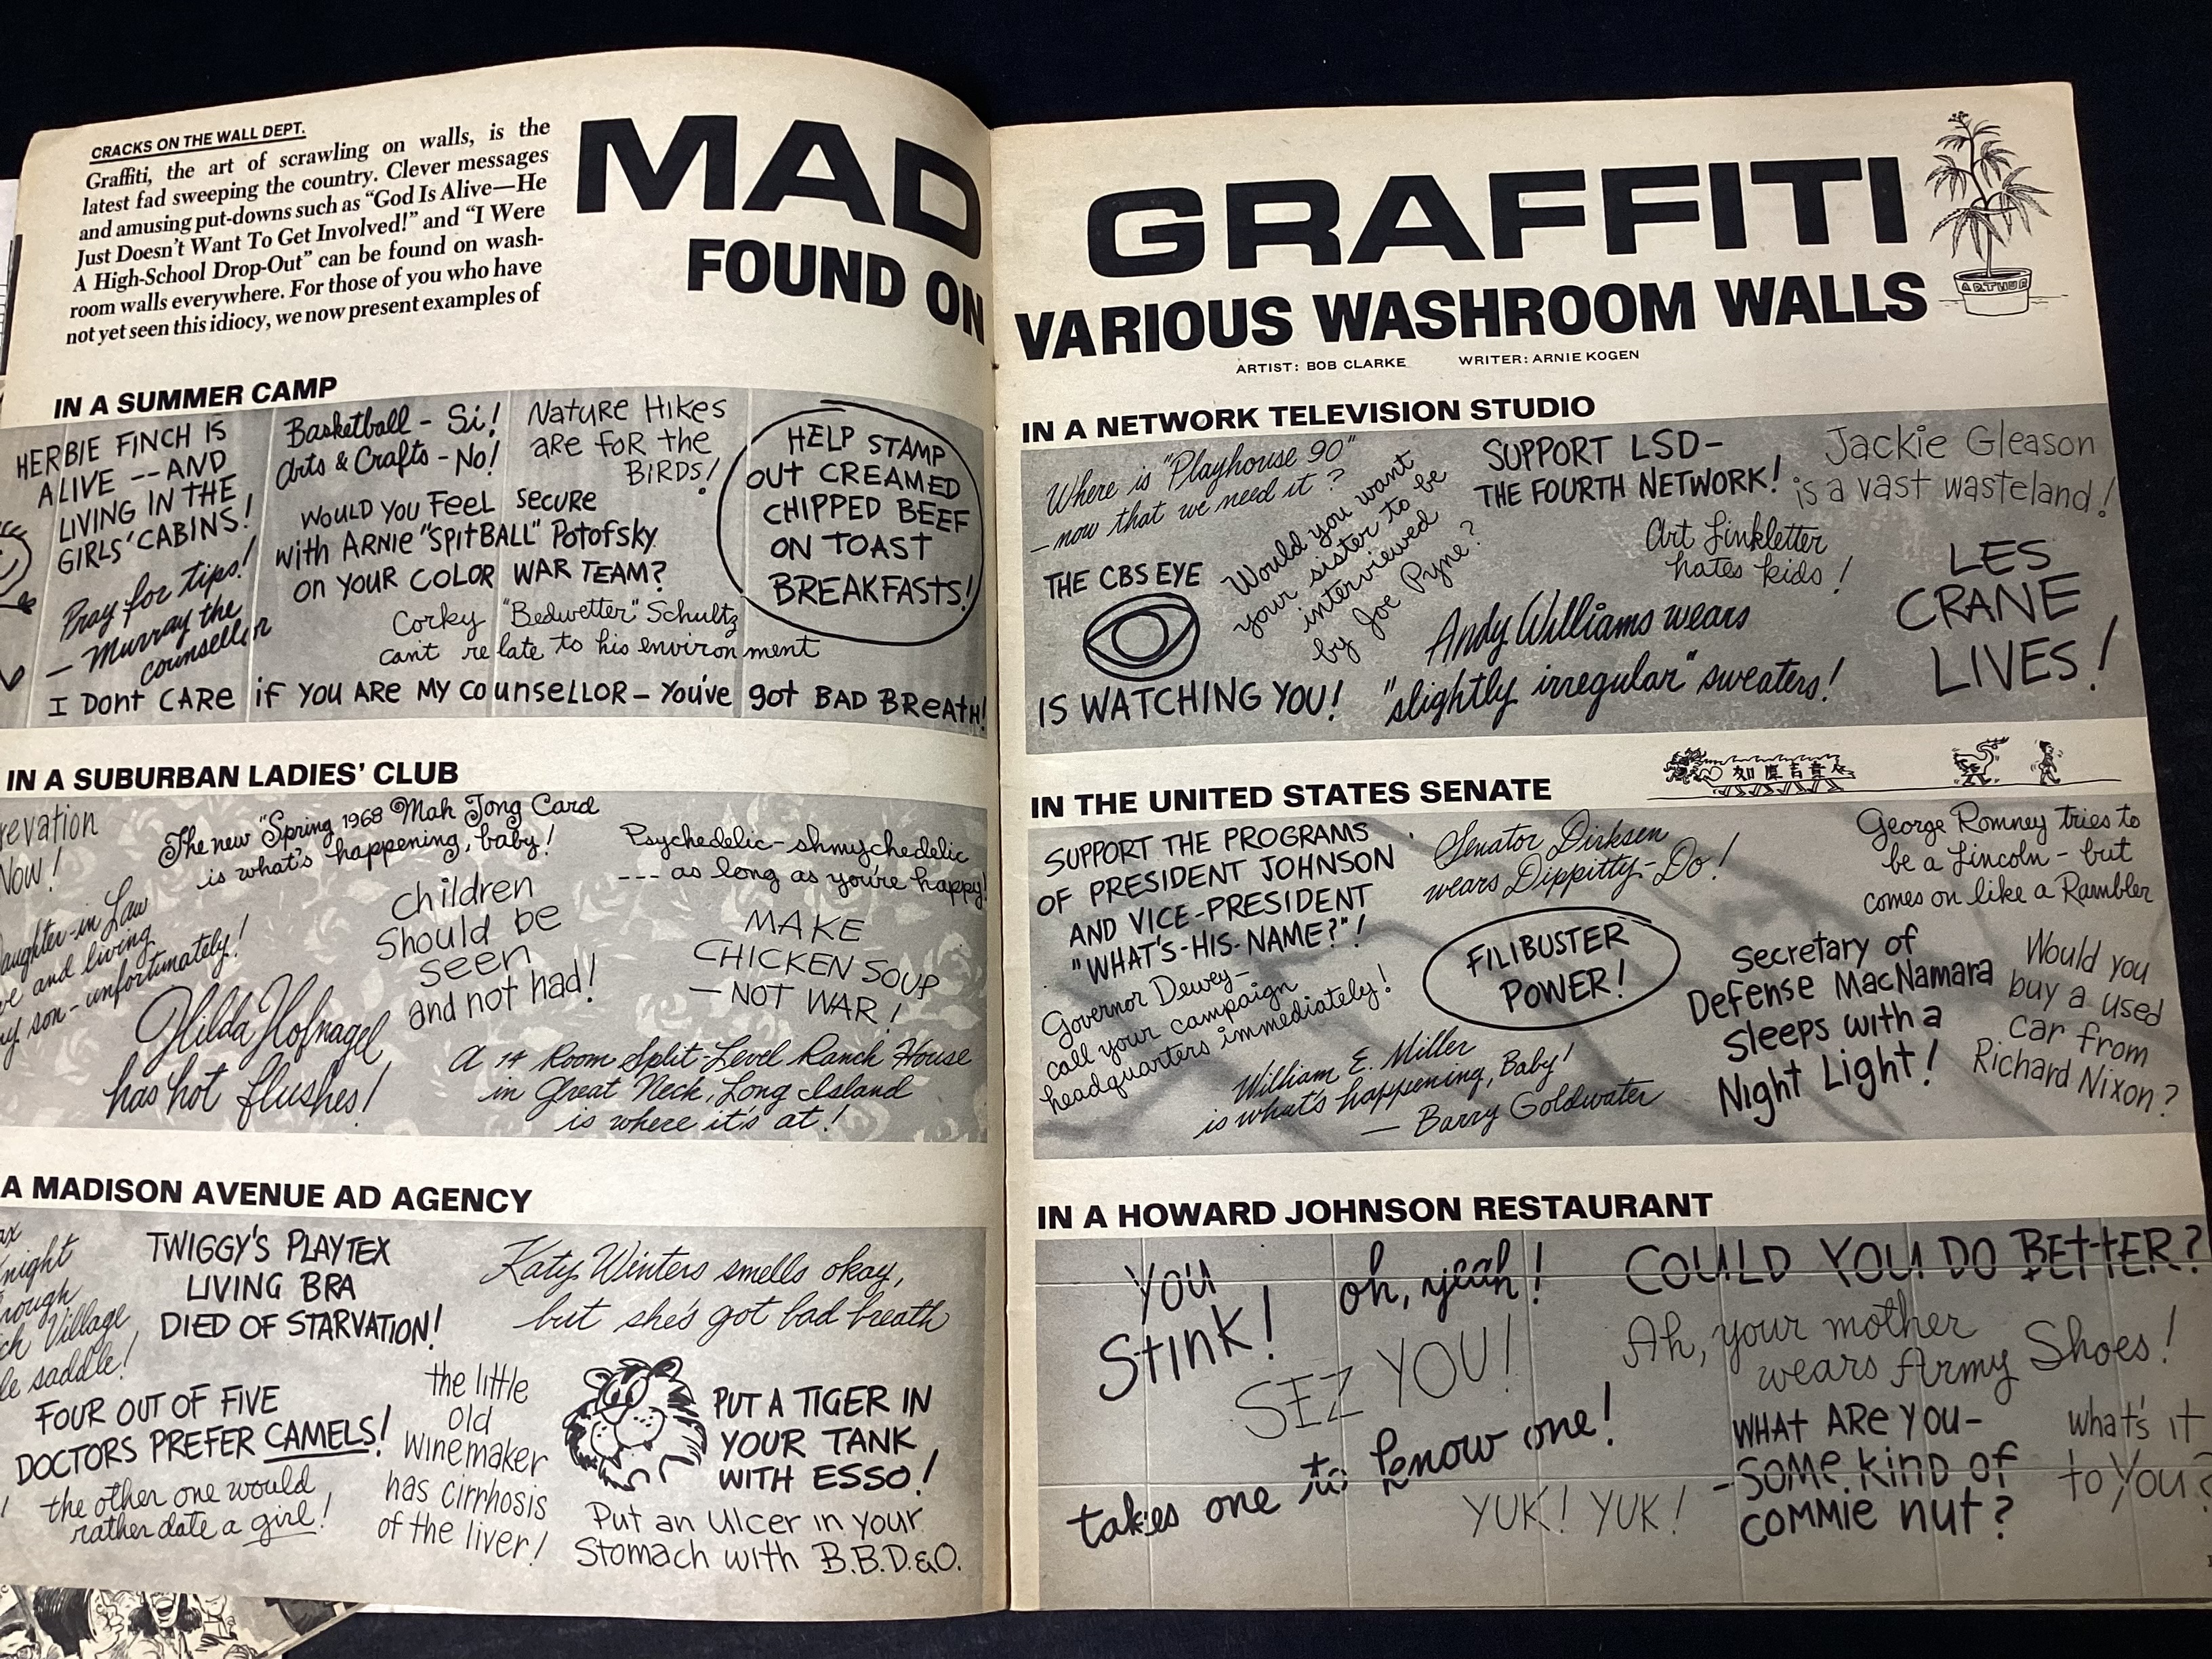 CRACKS ON THE WALL DEPT.
Graffiti, the art of scrawling on walls, is the
latest fad sweeping the country. Clever messages
and amusing put-downs such as “God Is Alive—He
Just Doesn’t Want To Get Involved!” and “I Were
A High-School Drop-Out” can be found on wash-
room walls everywhere. For those of you who have
not yet seen this idiocy, we now present examples of
MAD GRAFFITI
FOUND ON VARIOUS WASHROOM WALLS
ARTHUR
ARTIST: BOB CLARKE WRITER: ARNIE KOGEN
IN A SUMMER CAMP
HERBIE FINCH IS
ALIVE -- AND
LIVING IN THE
GIRLS' CABINS!
Pray for tips!
— Murray the
counsellor
Basketball - Si!
Arts & Crafts - No!
NATURE HIKES
ARE FOR the
BIRDS!
WOULD YOU FEEL SECURE
with ARNIE "SPITBALL" Potofsky
ON YOUR COLOR WAR TEAM?
HELP STAMP
OUT CREAMED
CHIPPED BEEF
ON TOAST
BREAKFASTS!
Corky "Bedwetter" Schultz
can't relate to his environment
I DONT CARE if YOU ARE MY COUNSELLOR – YOU'VE got BAD BREATH!
IN A SUBURBAN LADIES’ CLUB
Now!
The new "Spring 1968 Mah Jong Card
is what's happening, baby!
Psychedelic-shmychedelic
--- as long as you're happy!
and living
my son - unfortunately!
Children
should be
seen
and not had!
MAKE
CHICKEN SOUP
— NOT WAR!
Hilda Hofnagel
has hot flushes!
A 14 Room Split-Level Ranch House
in Great Neck, Long Island
is where it's at!
A MADISON AVENUE AD AGENCY
Village
saddle!
TWIGGY'S PLAYTEX
LIVING BRA
DIED OF STARVATION!
Katy Winters smells okay,
but she's got bad breath
FOUR OUT OF FIVE
DOCTORS PREFER CAMELS!
the other one would
rather date a girl!
the little
old
winemaker
has cirrhosis
of the liver!
PUT A TIGER IN
YOUR TANK
WITH ESSO!
Put an Ulcer in your
Stomach with B.B.D.&O.
IN A NETWORK TELEVISION STUDIO
Where is "Playhouse 90"
— now that we need it?
Would you want
your sister to be
interviewed
by Joe Pyne?
SUPPORT LSD –
THE FOURTH NETWORK!
Jackie Gleason
is a vast wasteland!
THE CBS EYE
IS WATCHING YOU!
Art Linkletter
hates kids!
Andy Williams wears
"slightly irregular" sweaters!
LES
CRANE
LIVES!
IN THE UNITED STATES SENATE
SUPPORT THE PROGRAMS
OF PRESIDENT JOHNSON
AND VICE-PRESIDENT
"WHAT'S-HIS-NAME?"!
Senator Dirksen
wears Dippitty-Do!
George Romney tries to
be a Lincoln – but
comes on like a Rambler
Governor Dewey –
call your campaign
headquarters immediately!
FILIBUSTER
POWER!
Secretary of
Defense MacNamara
Sleeps with a
Night Light!
Would you
buy a used
car from
Richard Nixon?
William E. Miller
is what's happening, Baby!
— Barry Goldwater
IN A HOWARD JOHNSON RESTAURANT
You
Stink!
oh, yeah!
COULD YOU DO BETTER?
SEZ YOU!
Ah, your mother
wears Army Shoes!
takes one to know one!
YUK! YUK!
WHAT ARE YOU –
– SOME KIND OF
COMMIE NUT?
what's it
to You?